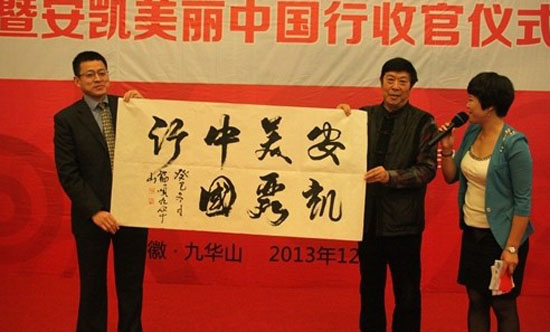 暨安凯美丽中国行收官仪式
安凯
美麗
中國
行
癸巳冬月
徽·九华山 2013年12